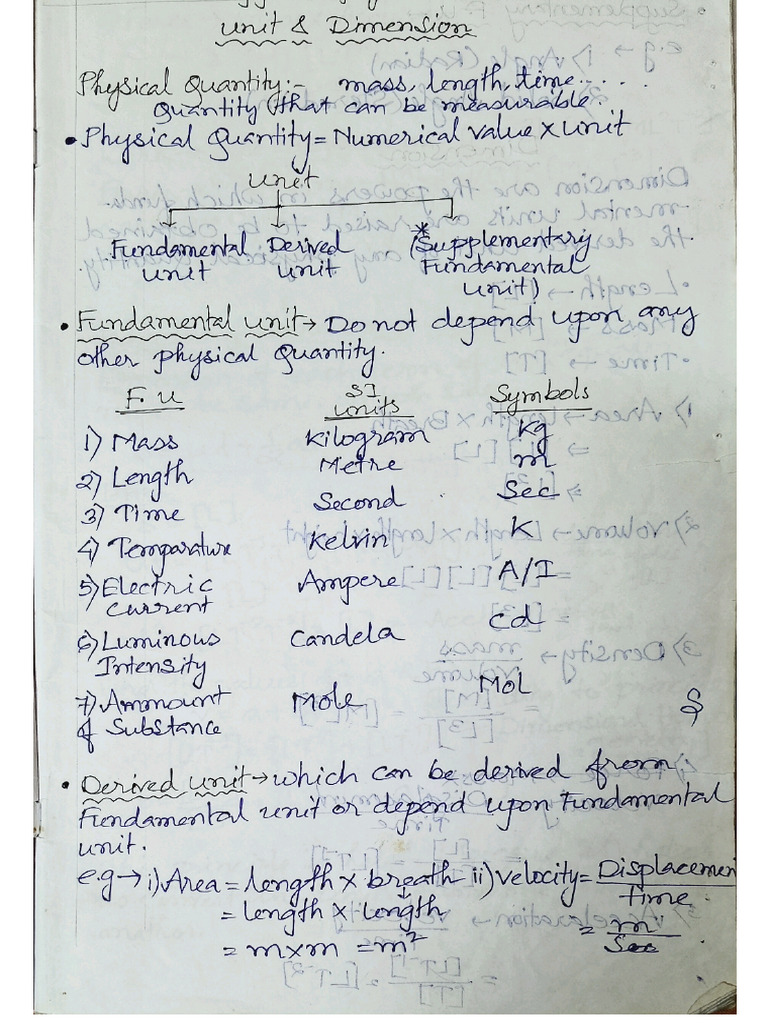 Unit & Dimension
Physical Quantity:- mass, length, time.....
Quantity that can be measurable.
• Physical Quantity = Numerical value x unit
Unit
Fundamental unit
Derived unit
*(Supplementary Fundamental unit)
• Fundamental unit → Do not depend upon any
other physical Quantity.
F.U SI units Symbols
1) Mass Kilogram Kg
2) Length Metre m
3) Time Second Sec
4) Temparature Kelvin K
5) Electric Current Ampere A/I
6) Luminous Intensity Candela cd
7) Ammount of Substance Mole Mol
• Derived unit → which can be derived from
Fundamental unit or depend upon Fundamental
unit.
e.g → i) Area = length x breath ii) velocity = Displacemen/Time
= length x length = m/Sec
= m x m = m²